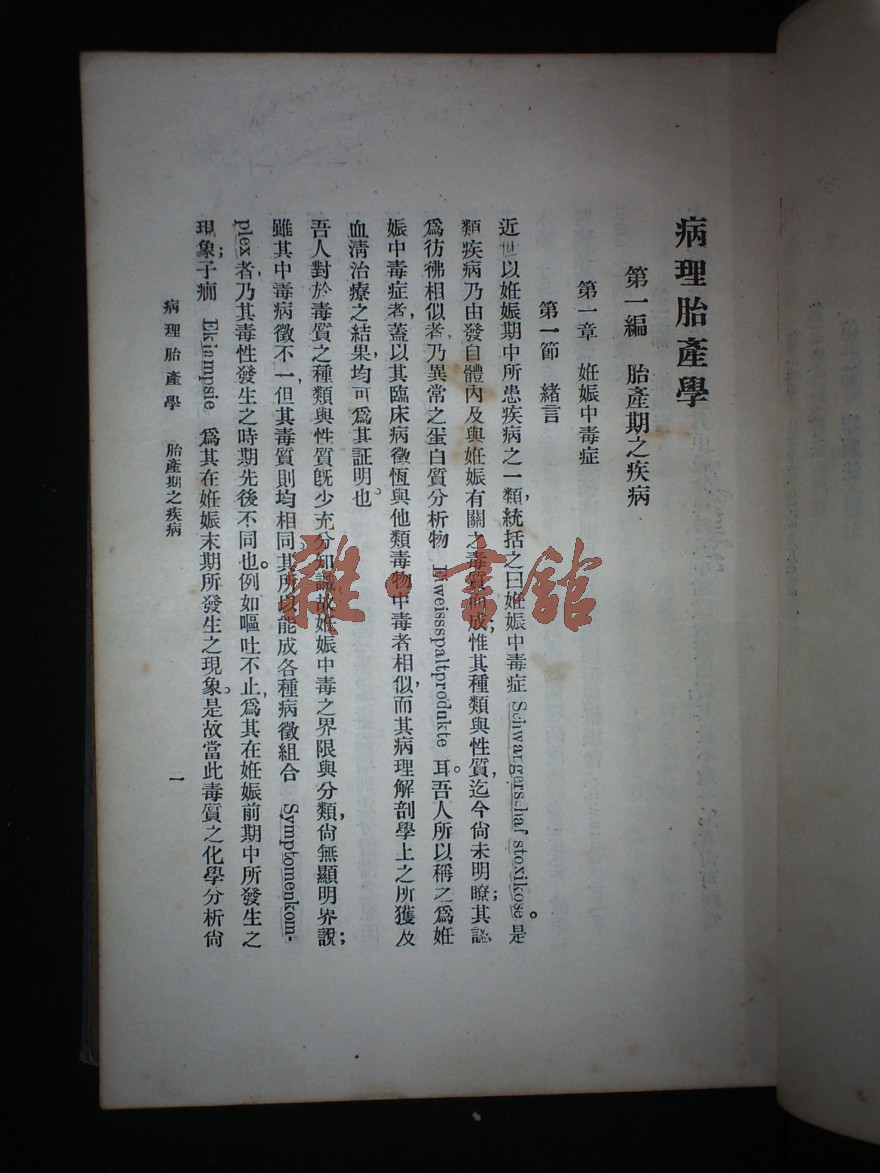 病理胎產學
第一編 胎產期之疾病
第一章 妊娠中毒症
第一節 緒言
近世以妊娠期中所患疾病之一類,統括之曰妊娠中毒症 Schwangerschaftstoxikose。是
類疾病乃由發自體內及與妊娠有關之毒質而成;惟其種類與性質,迄今尙未明瞭;其認
爲彷彿相似者,乃異常之蛋白質分析物 Eiweissspaltprodukte 耳。吾人所以稱之爲妊
娠中毒症者,蓋以其臨床病徵恆與他類毒物中毒者相似,而其病理解剖學上之所獲及
血淸治療之結果,均可爲其証明也。
吾人對於毒質之種類與性質旣少充分知識,故妊娠中毒之界限與分類,尙無顯明界說;
雖其中毒病徵不一,但其毒質則均相同。其所以能成各種病徵組合 Symptomenkom-
plex 者,乃其毒性發生之時期先後不同也。例如嘔吐不止,爲其在妊娠前期中所發生之
現象;子癎 Eklampsie 爲其在妊娠末期所發生之現象。是故當此毒質之化學分析尙
病理胎產學 胎產期之疾病 一
雜·書館